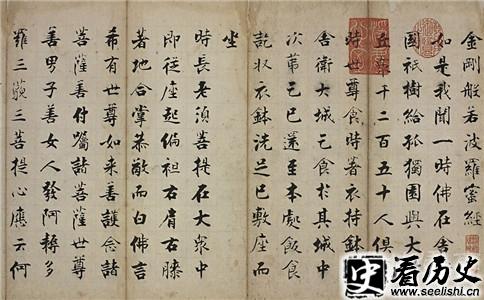 金剛般若波羅蜜經
如是我聞一時佛在舍
國祇樹給孤獨園與大
丘眾千二百五十人俱
時世尊食時著衣持鉢
舍衛大城乞食於其城中
次第乞已還至本處飯食
訖收衣鉢洗足已敷座而
坐
時長老須菩提在大眾中
即從座起偏袒右肩右膝
著地合掌恭敬而白佛言
希有世尊如來善護念諸
菩薩善付囑諸菩薩世尊
善男子善女人發阿耨多
羅三藐三菩提心應云何
史看历史
www.seelishi.cn